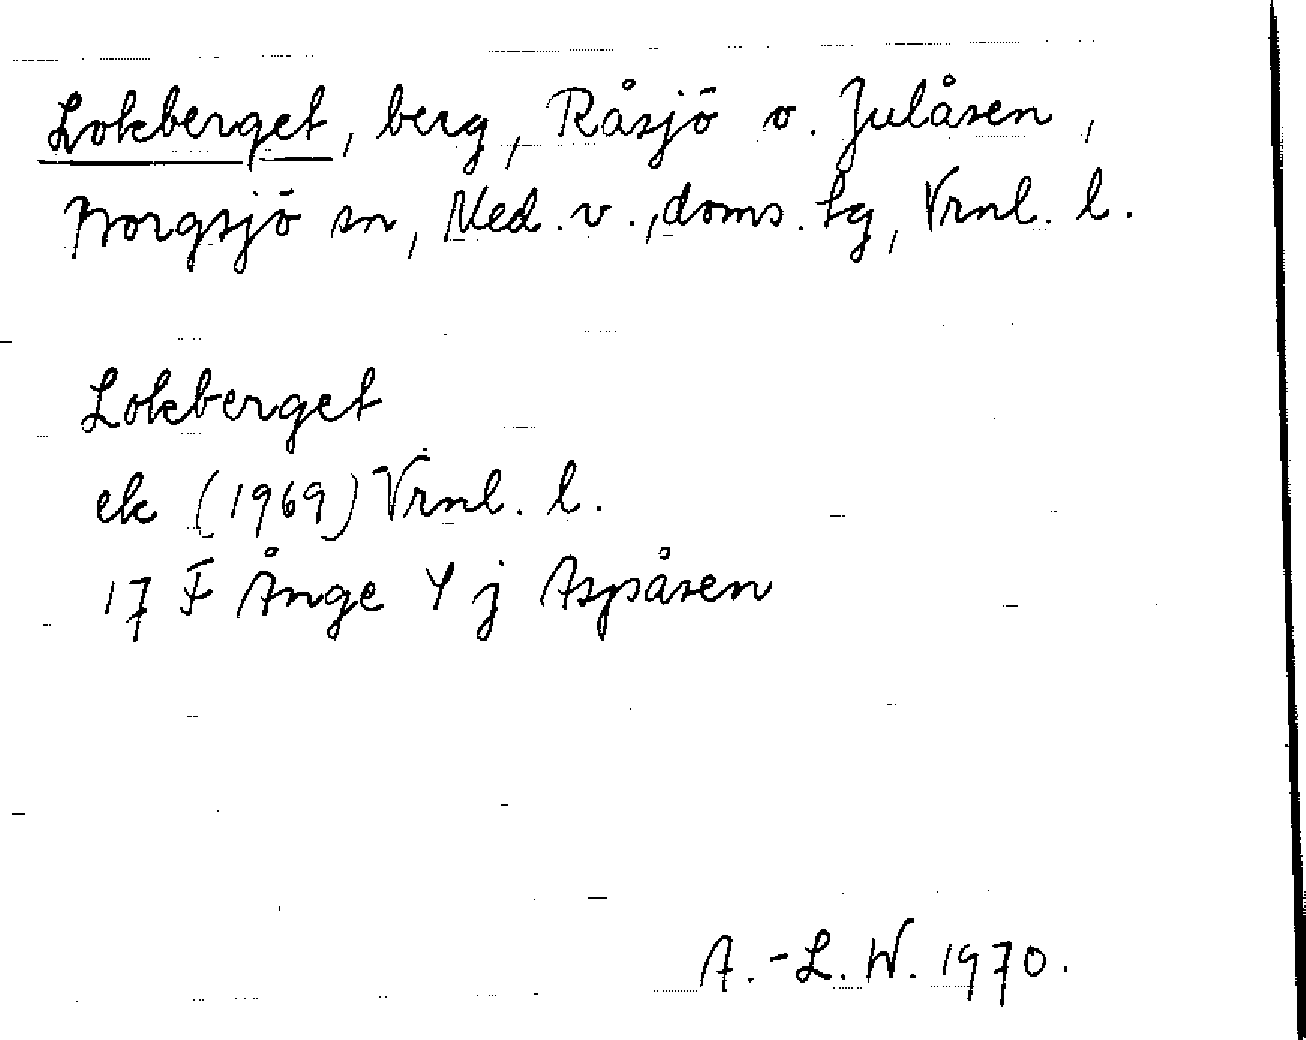 Lokberget, berg, Råsjö o. Julåsen,
Borgsjö sn, Med. v., doms. tg, Vrnl. l.
Lokberget
ek (1969) Vrnl. l.
17 F Ånge 4 j Aspåsen
A.-L. W. 1970.